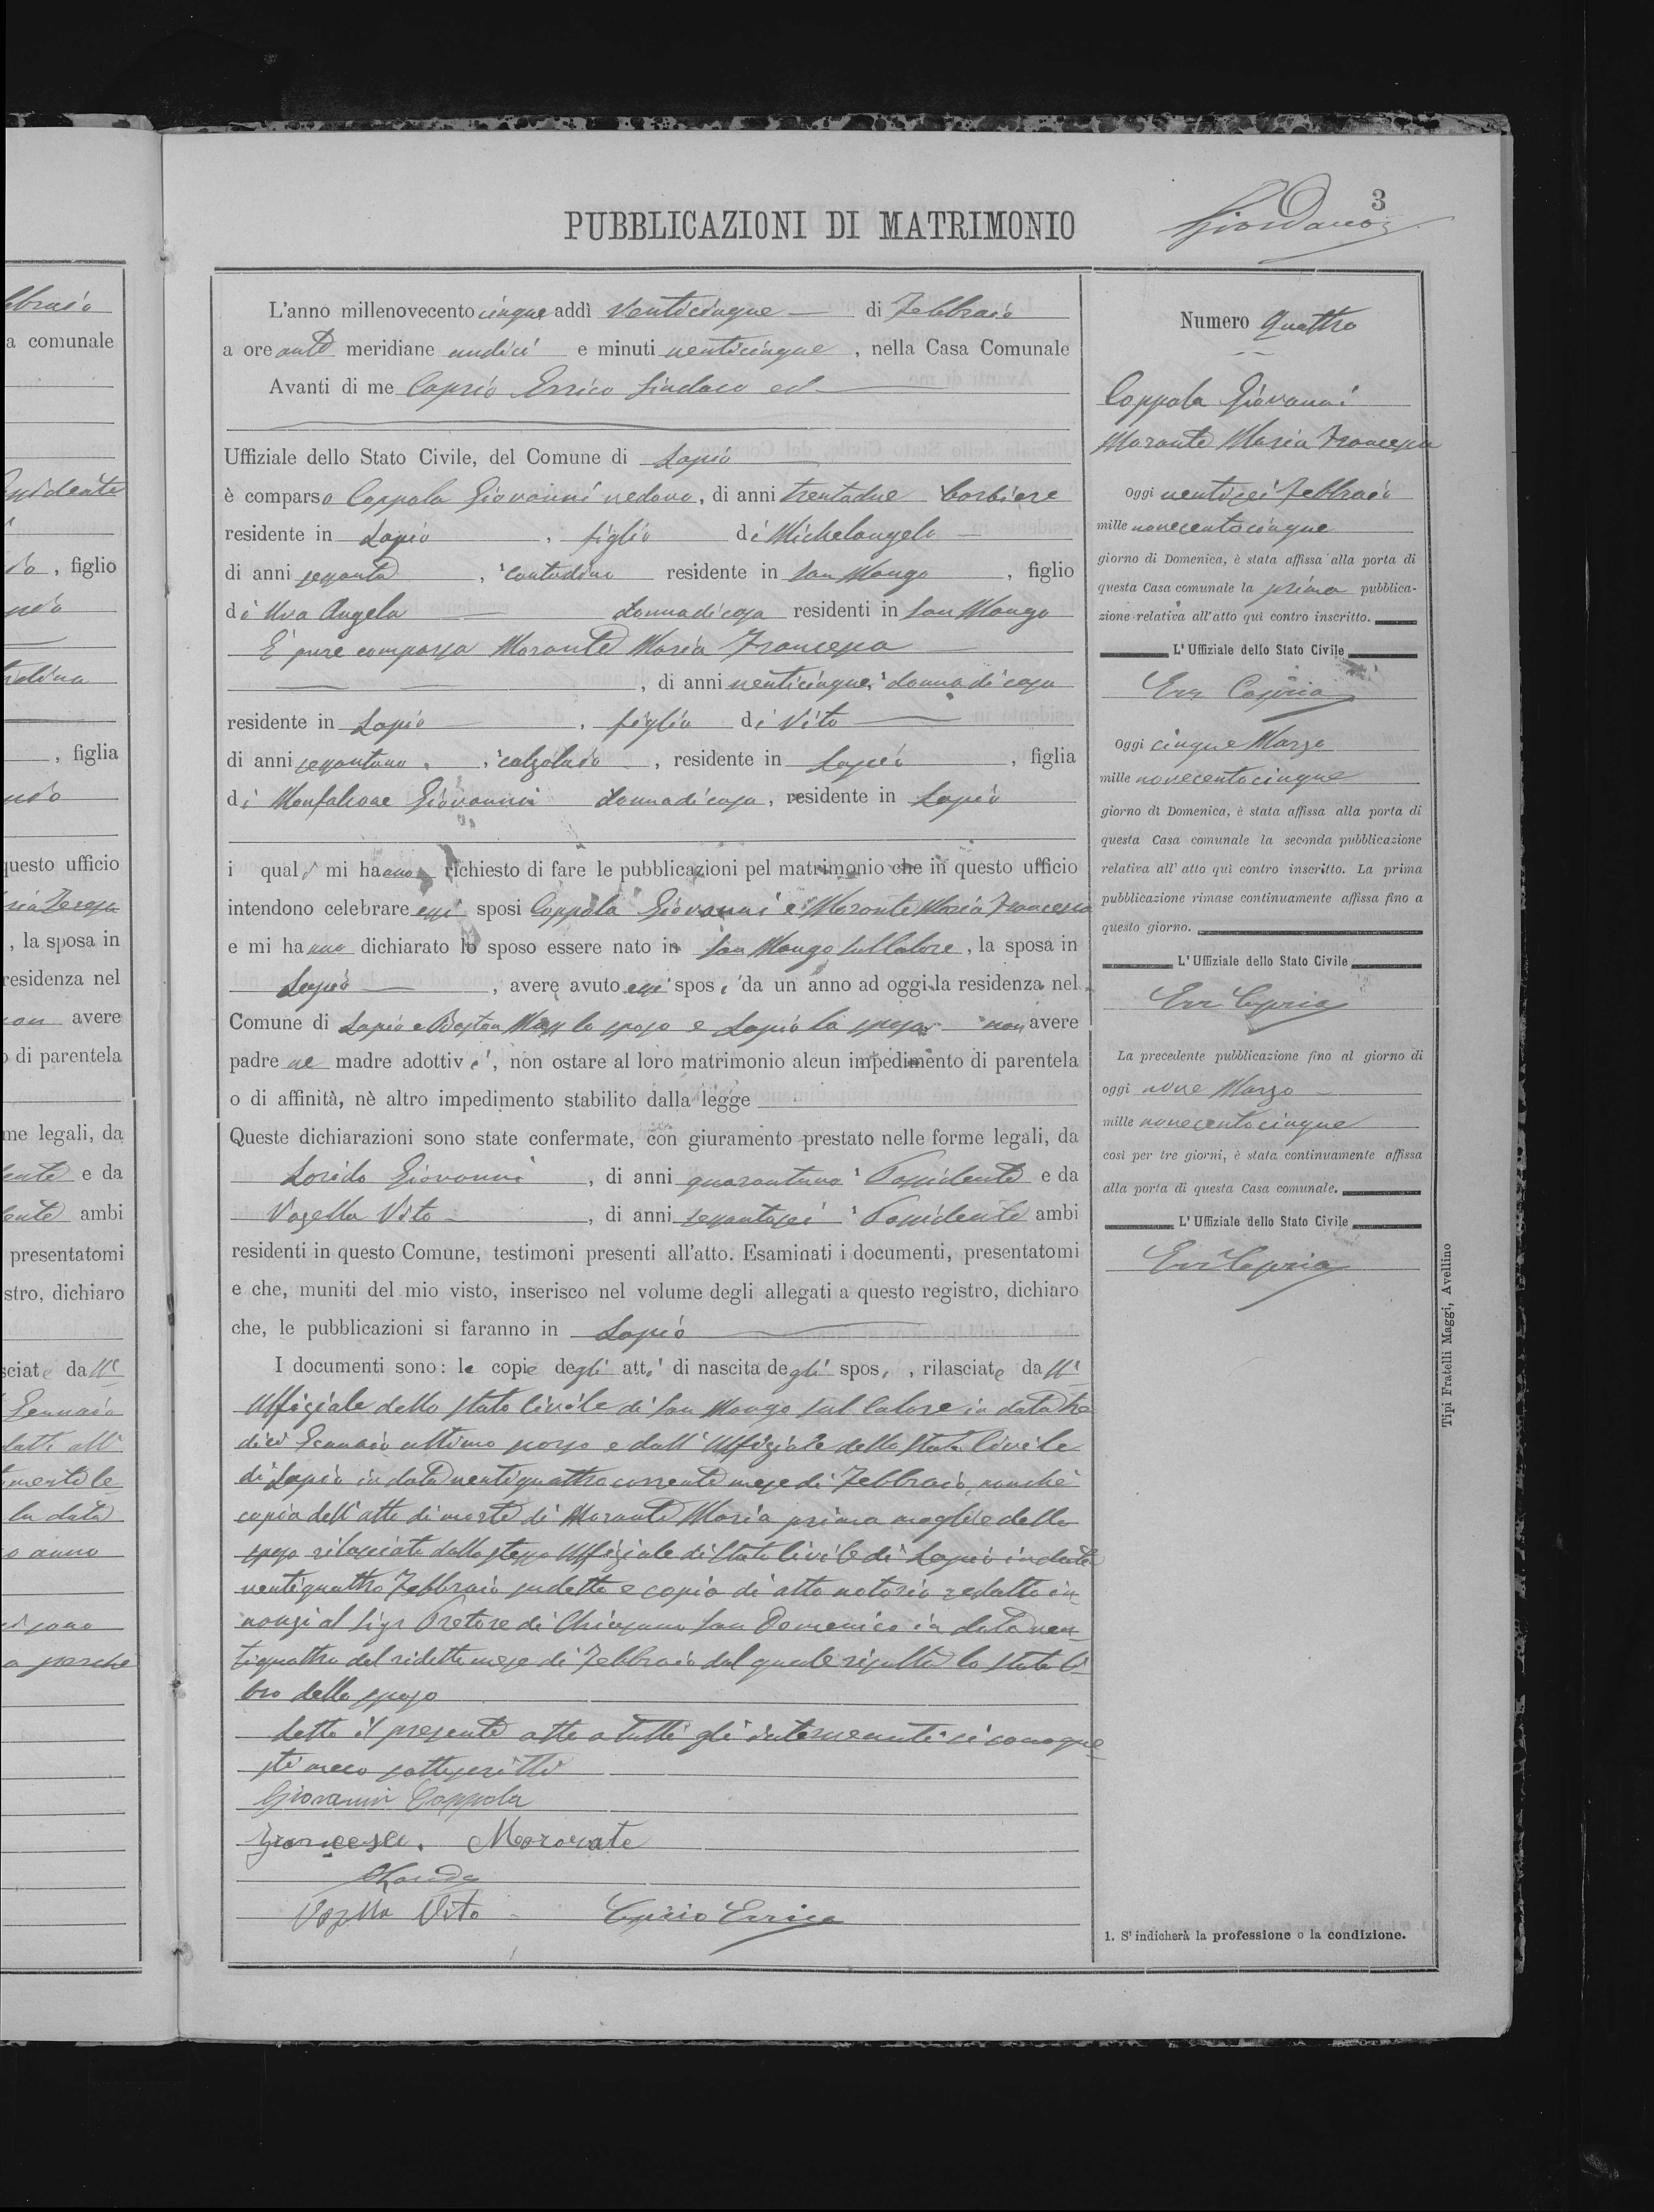 3
Giordano
PUBBLICAZIONI DI MATRIMONIO
ebbraio
a comunale
do , figlio
, figlia
questo ufficio
ria Teresa
, la sposa in
residenza nel
non avere
o di parentela
me legali, da
dente e da
dente ambi
presentatomi
stro, dichiaro
sciate dall'
Gennaio
la data
o anno
L'anno millenovecento cinque addì venticinque di Febbraio
a ore anti meridiane undici e minuti venticinque , nella Casa Comunale
Avanti di me Caprio Errico Sindaco ed
Uffiziale dello Stato Civile, del Comune di Lapio
è comparso Coppola Giovanni vedovo, di anni trentadue barbiere
residente in Lapio , figlio di Michelangelo
di anni sessanta , contadino residente in San Mango , figlio
di Uva Angela donna di casa residenti in San Mango
È pure comparsa Morante Maria Francesca
, di anni venticinque, donna di casa
residente in Lapio , figlia di Vito
di anni sessantuno , calzolaio , residente in Lapio , figlia
di Monfalcone Giovannina donna di casa, residente in Lapio
i quali mi hanno richiesto di fare le pubblicazioni pel matrimonio che in questo ufficio
intendono celebrare essi sposi Coppola Giovanni e Morante Maria Francesca
e mi hanno dichiarato lo sposo essere nato in San Mango sul Calore , la sposa in
Lapio , avere avuto essi sposi da un anno ad oggi la residenza nel
Comune di Lapio e Boston Mass lo sposo e Lapio la sposa non avere
padre ne madre adottivi, non ostare al loro matrimonio alcun impedimento di parentela
o di affinità, nè altro impedimento stabilito dalla legge
Queste dichiarazioni sono state confermate, con giuramento prestato nelle forme legali, da
Giovanni , di anni quarantuno Possidente e da
Vozella Vito , di anni sessantasei Possidente ambi
residenti in questo Comune, testimoni presenti all'atto. Esaminati i documenti, presentatomi
e che, muniti del mio visto, inserisco nel volume degli allegati a questo registro, dichiaro
che, le pubblicazioni si faranno in Lapio
I documenti sono: le copie degli atti di nascita degli sposi , rilasciate dall'
Uffiziale dello Stato Civile di San Mango sul Calore in data tre
dici Gennaio ultimo scorso e dall'Uffiziale dello Stato Civile
di Lapio in data ventiquattro corrente mese di Febbraio, nonchè
copia dell'atto di morte di Morante Maria prima moglie dello
sposo rilasciata dallo stesso Uffiziale di Stato Civile di Lapio in data
ventiquattro Febbraio sudetto e copia di atto notorio redatto in-
nanzi al Sigr Pretore di Chiusano San Domenico in data ven-
tiquattro del ridetto mese di Febbraio dal quale risulta lo stato li
bro dello sposo
Letto il presente atto a tutti gli intervenuti si sono que
sti meco sottoscritti
Giovanni Coppola
Francesca Morante
Vozella Vito Caprio Errico
Numero Quattro
Coppola Giovanni
Morante Maria Francesca
Oggi ventisei Febbraio
mille novecentocinque
giorno di Domenica, è stata affissa alla porta di
questa Casa comunale la prima pubblica-
zione relativa all'atto quì contro inscritto.
L'Uffiziale dello Stato Civile
Err Caprio
Oggi cinque Marzo
mille novecentocinque
giorno di Domenica, è stata affissa alla porta di
questa Casa comunale la seconda pubblicazione
relativa all'atto quì contro inscritto. La prima
pubblicazione rimase continuamente affissa fino a
questo giorno.
L'Uffiziale dello Stato Civile
Err Caprio
La precedente pubblicazione fino al giorno di
oggi nove Marzo
mille novecentocinque
così per tre giorni, è stata continuamente affissa
alla porta di questa Casa comunale.
L'Uffiziale dello Stato Civile
Err Caprio
1. S'indicherà la professione o la condizione.
Tipi Fratelli Maggi, Avellino